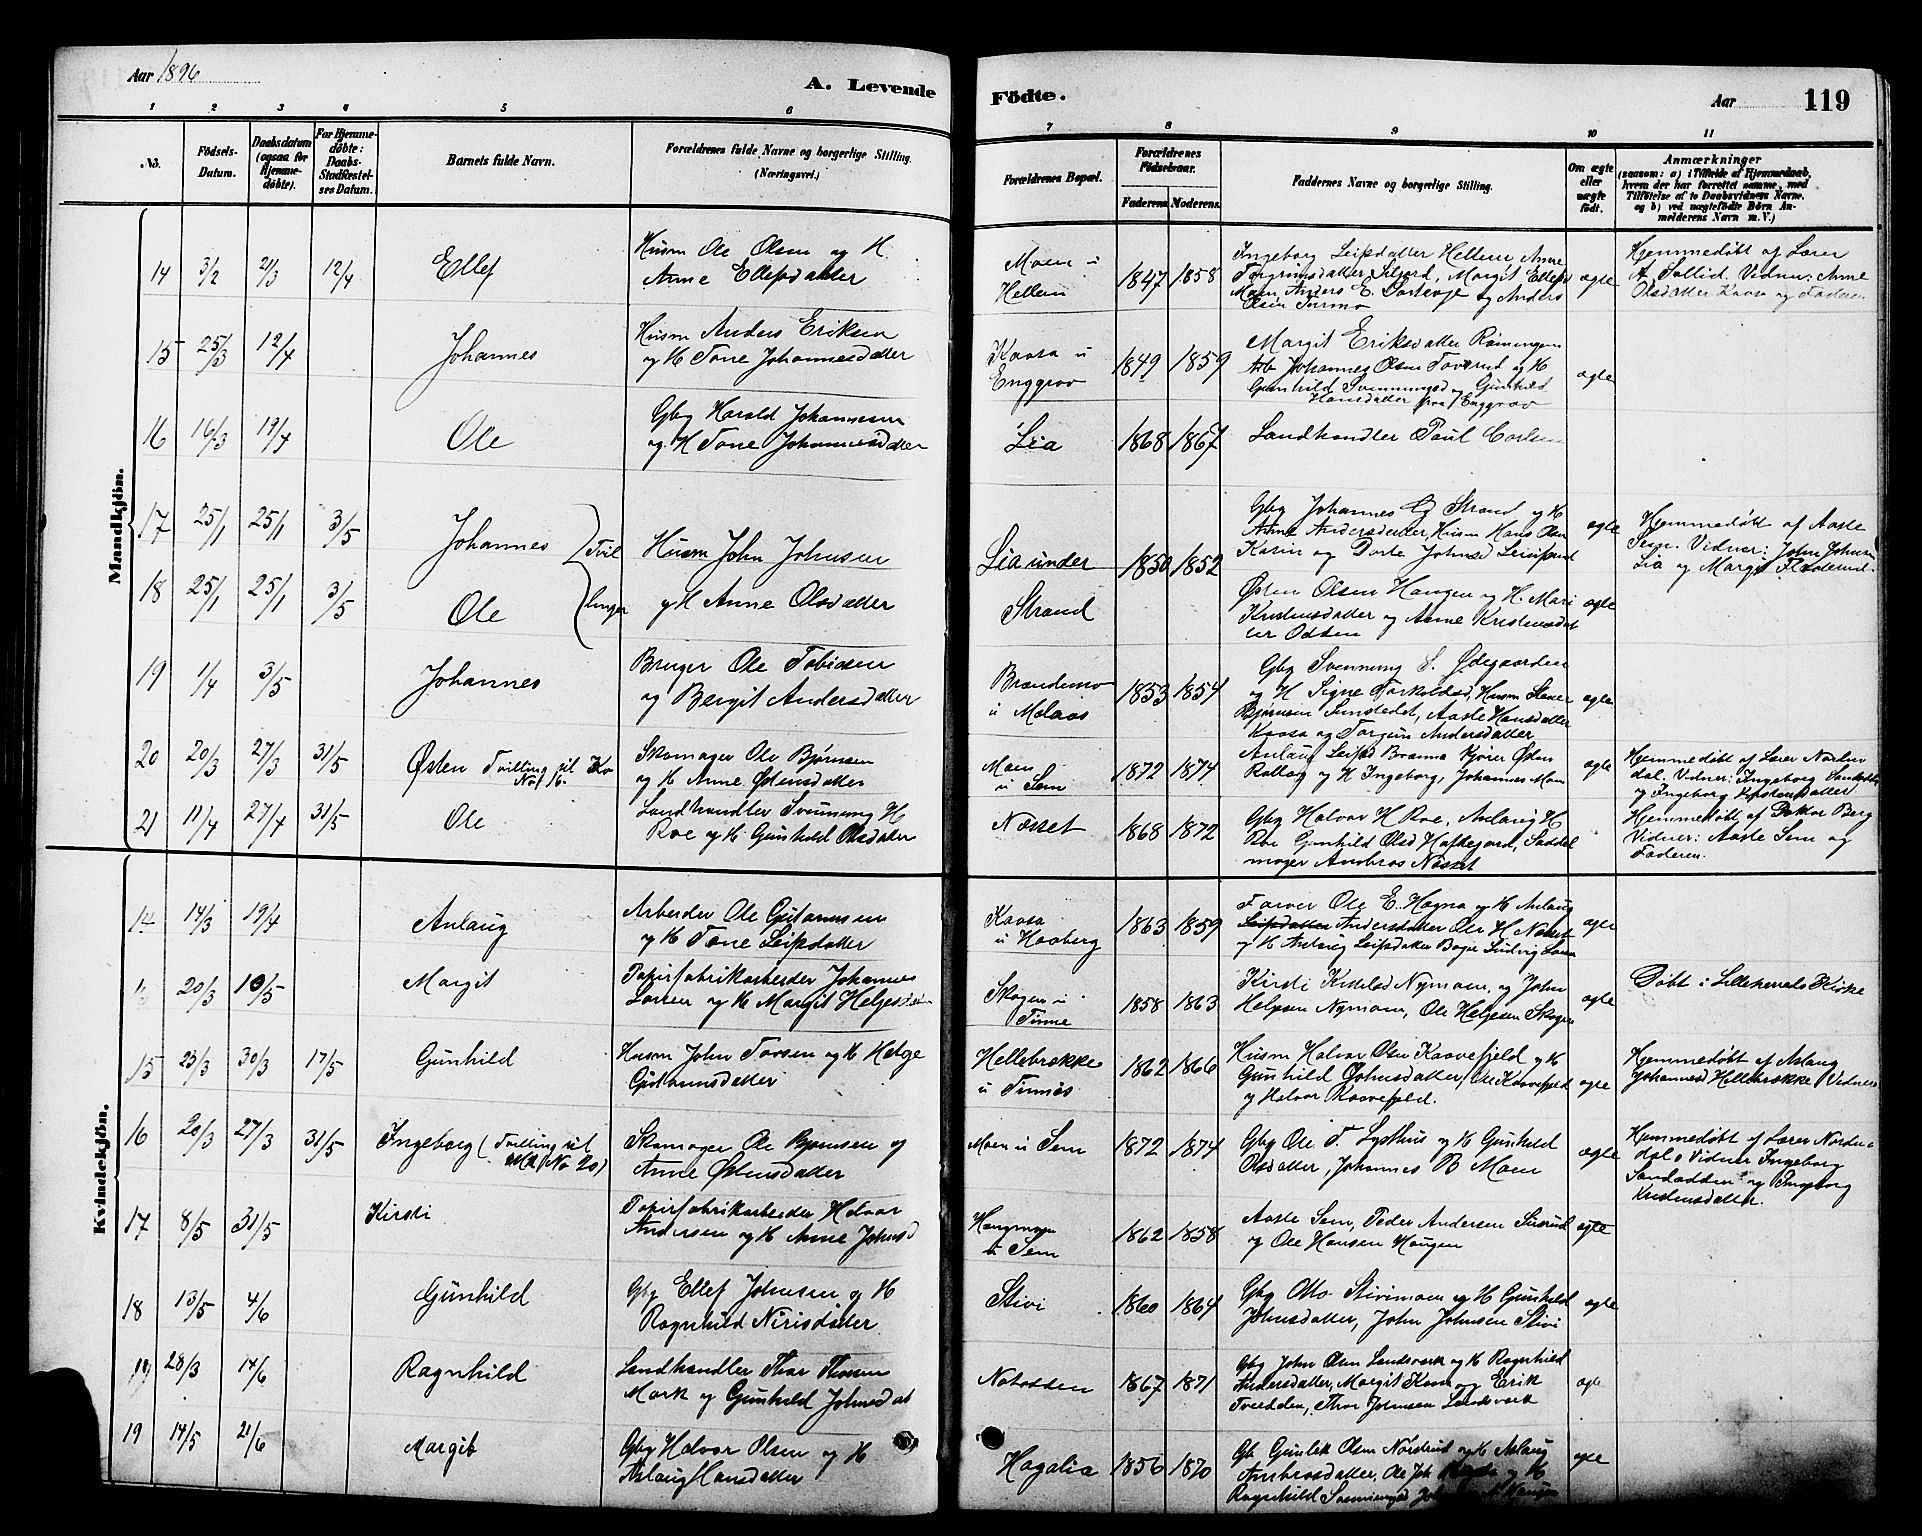 Aar 1896
A. Levende
Födte.
Aar
119
1 2 3 4 5 6
7 8 9 10 11
No.
Födsels-
Datum.
Daabsdatum
(ogsaa for
Hjemme-
døbte).
For Hjemme-
døbte:
Daabs-
Stadfæstel-
ses Datum.
Barnets fulde Navn.
Forældrenes fulde Navne og borgerlige Stilling.
(Næringsvei.)
Forældrenes Bopæl.
Forældrenes
Födselsaar.
Faderens Moderens
Faddernes Navne og borgerlige Stilling.
Om ægte
eller
uægte
födt.
Anmærkninger
(saasom: a) i Tilfælde af Hjemmedaab,
hvem der har forrettet samme, med
Tilföielse af to Daabsvidners Navne,
og b) ved uægtefödte Börn An-
melderens Navn m. V.)
Mandkjön.
14 3/2 2/3 12/4 Ellef
Husm Ole Olsen og H.
Anne Ellefsdatter
Moen u
Hellen
1847 1858
Ingeborg Leifsdatter Hellene Anne
Torgrimsdatter, Margit Ellefsd
Moen Anders E. og Anders
Olsen
ægte
Hjemmedøbt af Lærer
A Sollid. Vidner: Anne
Olsdatter Kaasa og Faderen
15 25/3 12/4 Johannes
Husm Anders Eriksen
og H Tone Johannesdatter
Kaasa u
Enggrav
1849 1859
Margit Eriksdatter Rønningen
Arb Johannes Olsen og H
Gunhild Svenningsd og Gunhild
Hansdatter fra Enggrav
ægte
16 16/3 19/4 Ole
Gbg Harald Johannesen
og H Tone Johannesdatter
Lia
1868 1867
Landhandler Paul Carlsen
17 25/1 25/1 3/5 Johannes
Tvil
Husm John Johnsen
Lia under
1850 1852
Gbg Johannes G Strand og H
Anne Andersdatter Husm Hans Olsen
Karin og Dorte Johnsd
ægte
Hjemmedøbt af Aaste
Sem. Vidner: John Johnsen
Lia og Margit
18 25/1 25/1 3/5 Ole
linger
og H Anne Olsdatter
Strand
Østen Olsen Haugen og H. Mari
Kristensdatter og Anne Kristensdat
ter Odden
ægte
19 1/4 3/5 Johannes
Bruger Ole Tobiasen
og Bergit Andersdatter
Brandemo
u Melaas
1853 1854
Gbg Svenning S. Ødegaarden
og H Signe Torkildsd, Husm
Bjørnsen, Aaste Hansdatter
Kaasa og Torgun Andersdatter
ægte
20 20/3 27/3 31/5 Østen Tvilling til Kv
No 16.
Skomager Ole Bjørnsen
og H Anne Østensdatter
Moen
u Sem
1872 1874
Aslaug Leifsd Østen
Rollag og H Ingeborg, Johannes Moen
ægte
Hjemmedøbt af Lærer Norden
dal. Vidner: Ingeborg
og Ingeborg Kristensdatter
21 11/4 27/4 31/5 Ole
Landhandler Svenning H
Roe og H. Gunhild Olsdatter
Næset
1868 1872
Gbg Halvor H Roe, Aslaug H
Roe Gunhild Olsd Haftegaard, Saddel
mager Ambros Næset
Hjemmedøbt af Doktor Berg
Vidner: Aaste Sem og
Faderen.
Kvindekjön.
14 14/3 19/4 Aslaug
Arbeider Ole Guttormsen
og H Tone Leifsdatter
Kaasa
u Haaberg
1863 1859
Farver Ole E. Hagna og H Aslaug
Leifsdatter Andersdatter Ole H Næset
og H Aslaug Leifsdatter
ægte
20/3 10/5 Margit
Papirfabrikarbeider Johannes
Larsen og H Margit Helgesdatter
Skogen u
Tinne
1858 1863
Kirsti Nymoen, og John
Helgesen Nymoen, Ole Helgesen Skogen
ægte
Døbt i Lilleherreds Kirke
15 23/3 30/3 17/5 Gunhild
Husm John Torsen og H Helge
Guttormsdatter
Hellebrække
u Tinnæs
1862 1866
Husm Halvor Olsen Kaavefjeld og H
Gunhild Johnsdatter, Ole Kaavefjeld
og Halvor Kaavefjeld.
ægte
Hjemmedøbt af Aslaug
Johannesd Hellebrække. Vidner:
16 20/3 27/3 31/5 Ingeborg (Tvilling til
Mk. No 20)
Skomager Ole Bjørnsen og
Anne Østensdatter
Moen u Sem
1872 1874
Gbg Ole T. Lysthus og H Gunhild
Olsdatter, Johannes B Moen
ægte
Hjemmedøbt af Lærer Norden-
dal. Vidner Ingeborg
og Ingeborg
Kristensdatter.
17 8/5 31/5 Kirsti
Papirfabrikarbeider Halvor
Andersen og H Anne Johnsd
Haugmoen
u Sem
1862 1858
Aaste Sem, Peder Andersen
og Ole Hansen Haugen
ægte
18 13/5 4/6 Gunhild
Gbg Ellef Johnsen og H
Ragnhild Nirisdatter
Stivi
1860 1864
Gbg Otto Stivimoen og H Gunhild
Johnsdatter, John Johnsen Stivi
ægte
19 28/3 14/6 Ragnhild
Landhandler Thor Thorsen
Mork og Gunhild Johnsdat
Notodden
1867 1871
Gbg John Olsen Landsverk og H Ragnhild
Andersdatter, Margit Kaasa og Erik
Tveidden, Thor Johnsen Landsverk
ægte
19 14/5 21/6 Margit
Gbg Halvor Olsen og H
Aslaug Hansdatter
Hagalia
1856 1870
Gb Gunlek Olsen Nordrud og H Aslaug
Ambrosdatter, Ole Joh og H
Ragnhild
ægte